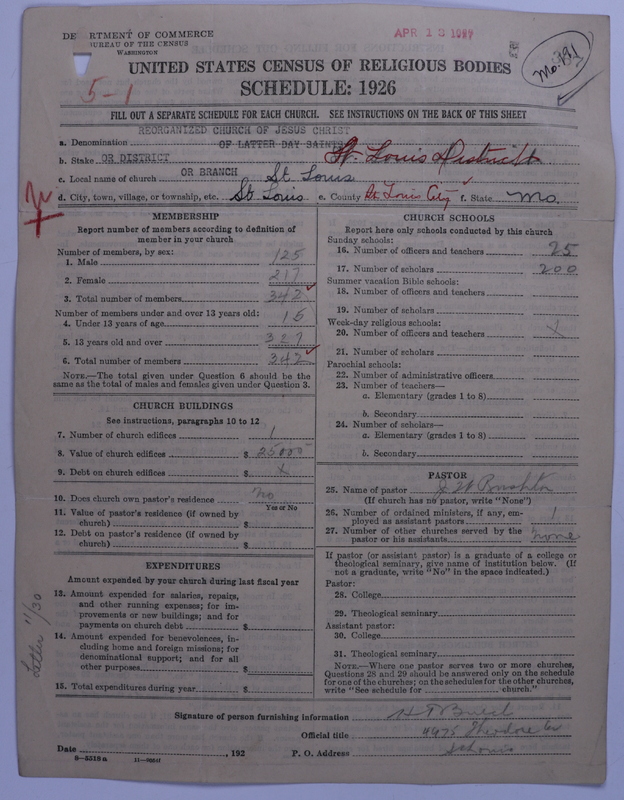 DEPARTMENT OF COMMERCE
BUREAU OF THE CENSUS
WASHINGTON
APR 13 1927
Mo-191
UNITED STATES CENSUS OF RELIGIOUS BODIES
5-1
SCHEDULE: 1926
FILL OUT A SEPARATE SCHEDULE FOR EACH CHURCH. SEE INSTRUCTIONS ON THE BACK OF THIS SHEET
REORGANIZED CHURCH OF JESUS CHRIST
a. Denomination OF LATTER DAY SAINTS
b. Stake OR DISTRICT St. Louis District
c. Local name of church OR BRANCH St Louis
d. City, town, village, or township, etc. St. Louis e. County St Louis City f. State Mo.
MEMBERSHIP
Report number of members according to definition of
member in your church
Number of members, by sex:
1. Male 125
2. Female 217
3. Total number of members 342
Number of members under and over 13 years old:
4. Under 13 years of age 15
5. 13 years old and over 327
6. Total number of members 342
NOTE.—The total given under Question 6 should be the
same as the total of males and females given under Question 3.
CHURCH BUILDINGS
See instructions, paragraphs 10 to 12
7. Number of church edifices 1
8. Value of church edifices $ 25000
9. Debt on church edifices $ x
10. Does church own pastor's residence no
Yes or No
11. Value of pastor's residence (if owned by
church) $
12. Debt on pastor's residence (if owned by
church) $
EXPENDITURES
Amount expended by your church during last fiscal year
13. Amount expended for salaries, repairs,
and other running expenses; for im-
provements or new buildings; and for
payments on church debt $
14. Amount expended for benevolences, in-
cluding home and foreign missions; for
denominational support; and for all
other purposes $
15. Total expenditures during year $
Letter 11/30
CHURCH SCHOOLS
Report here only schools conducted by this church
Sunday schools:
16. Number of officers and teachers 25
17. Number of scholars 200
Summer vacation Bible schools:
18. Number of officers and teachers
19. Number of scholars
Week-day religious schools:
20. Number of officers and teachers x
21. Number of scholars
Parochial schools:
22. Number of administrative officers
23. Number of teachers—
a. Elementary (grades 1 to 8)
b. Secondary
24. Number of scholars—
a. Elementary (grades 1 to 8)
b. Secondary
PASTOR
25. Name of pastor
(If church has no pastor, write "None")
26. Number of ordained ministers, if any, em-
ployed as assistant pastors 1
27. Number of other churches served by the
pastor or his assistants none
If pastor (or assistant pastor) is a graduate of a college or
theological seminary, give name of institution below. (If
not a graduate, write "No" in the space indicated.)
Pastor:
28. College
29. Theological seminary
Assistant pastor:
30. College
31. Theological seminary
NOTE.—Where one pastor serves two or more churches,
Questions 28 and 29 should be answered only on the schedule
for one of the churches; on the schedules for the other churches,
write "See schedule for church."
Signature of person furnishing information
Official title 4975 Theodore
Date , 192 P. O. Address St Louis
8—5518a